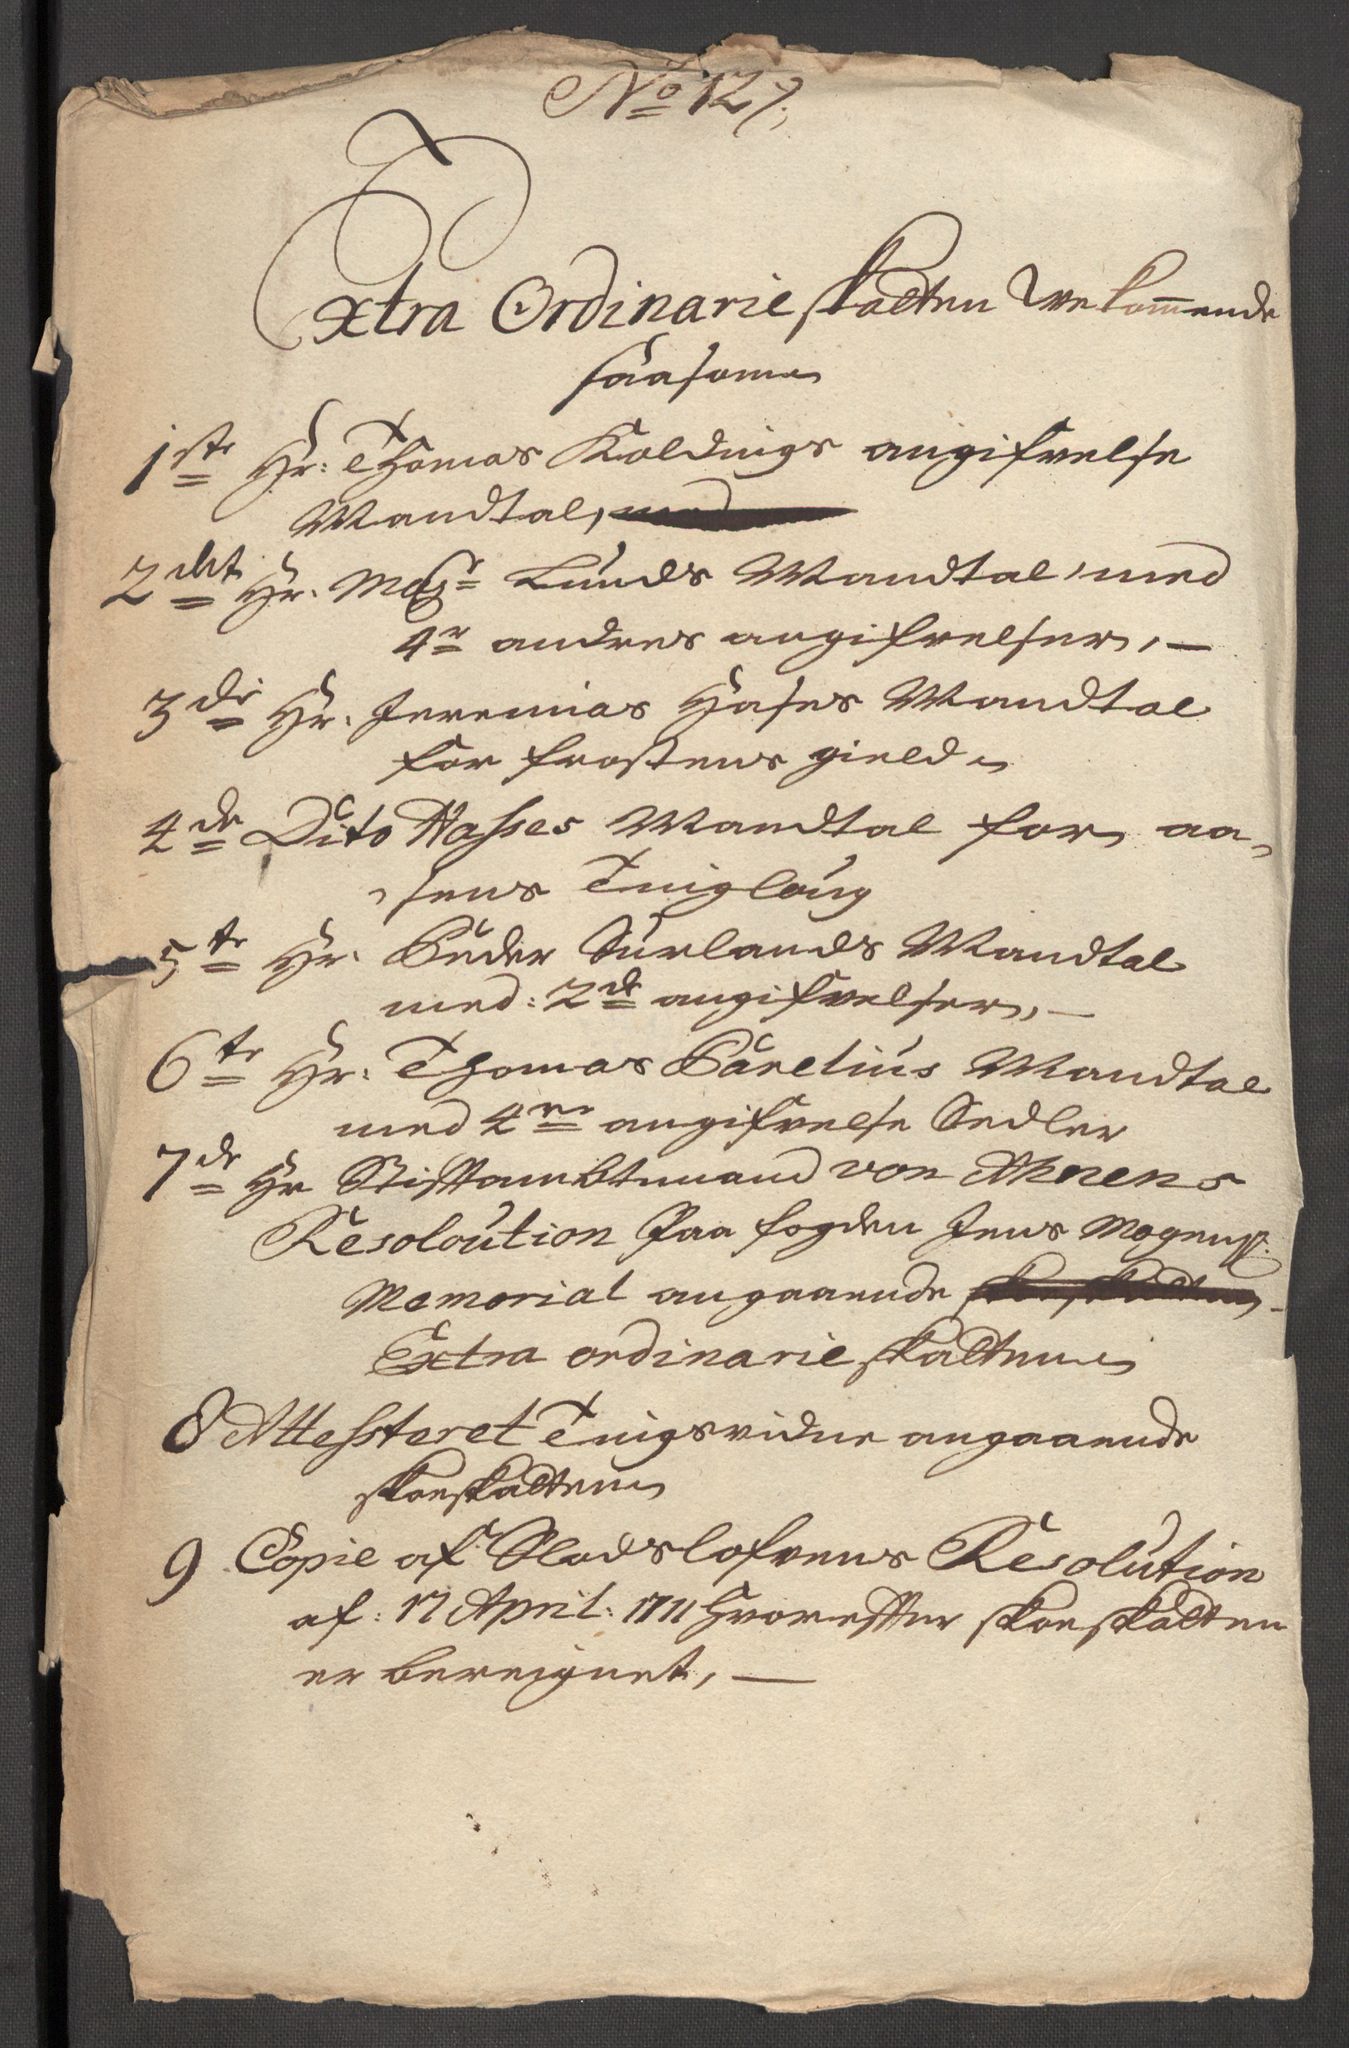 No 127,
Extra Ordinarie skatten Vekom̄ende
saasom
1ste Hr: Thomas Koldings angifvelse
Mandtal, med
2det Hr. Magr Lunds Mandtal, med
4re andres angifvelser, —
3die Hr. Jeremias Hases Mandtal
for frostens gield
4de Dito Hasses Mandtal for aa-
sens Tinglaug
5te Hr. Peder Surlands Mandtal
med: 2de angifvelser, —
6te Hr: Thomas Parelius Mandtal
med 4re angifvelse Sedler
7de Hr Stiftambtmand von Ahnens
Resoloution Paa fogden Jens Mogens.
Memorial angaaende skoeskatten
Extra ordinarie skatten
8 Attesteret Tingsvidne angaaende
skoeskatten
9 Copie af Slodslofvens Resolution
af: 17 April: 1711 Hvorefter skoeskatten
er bereignet, —